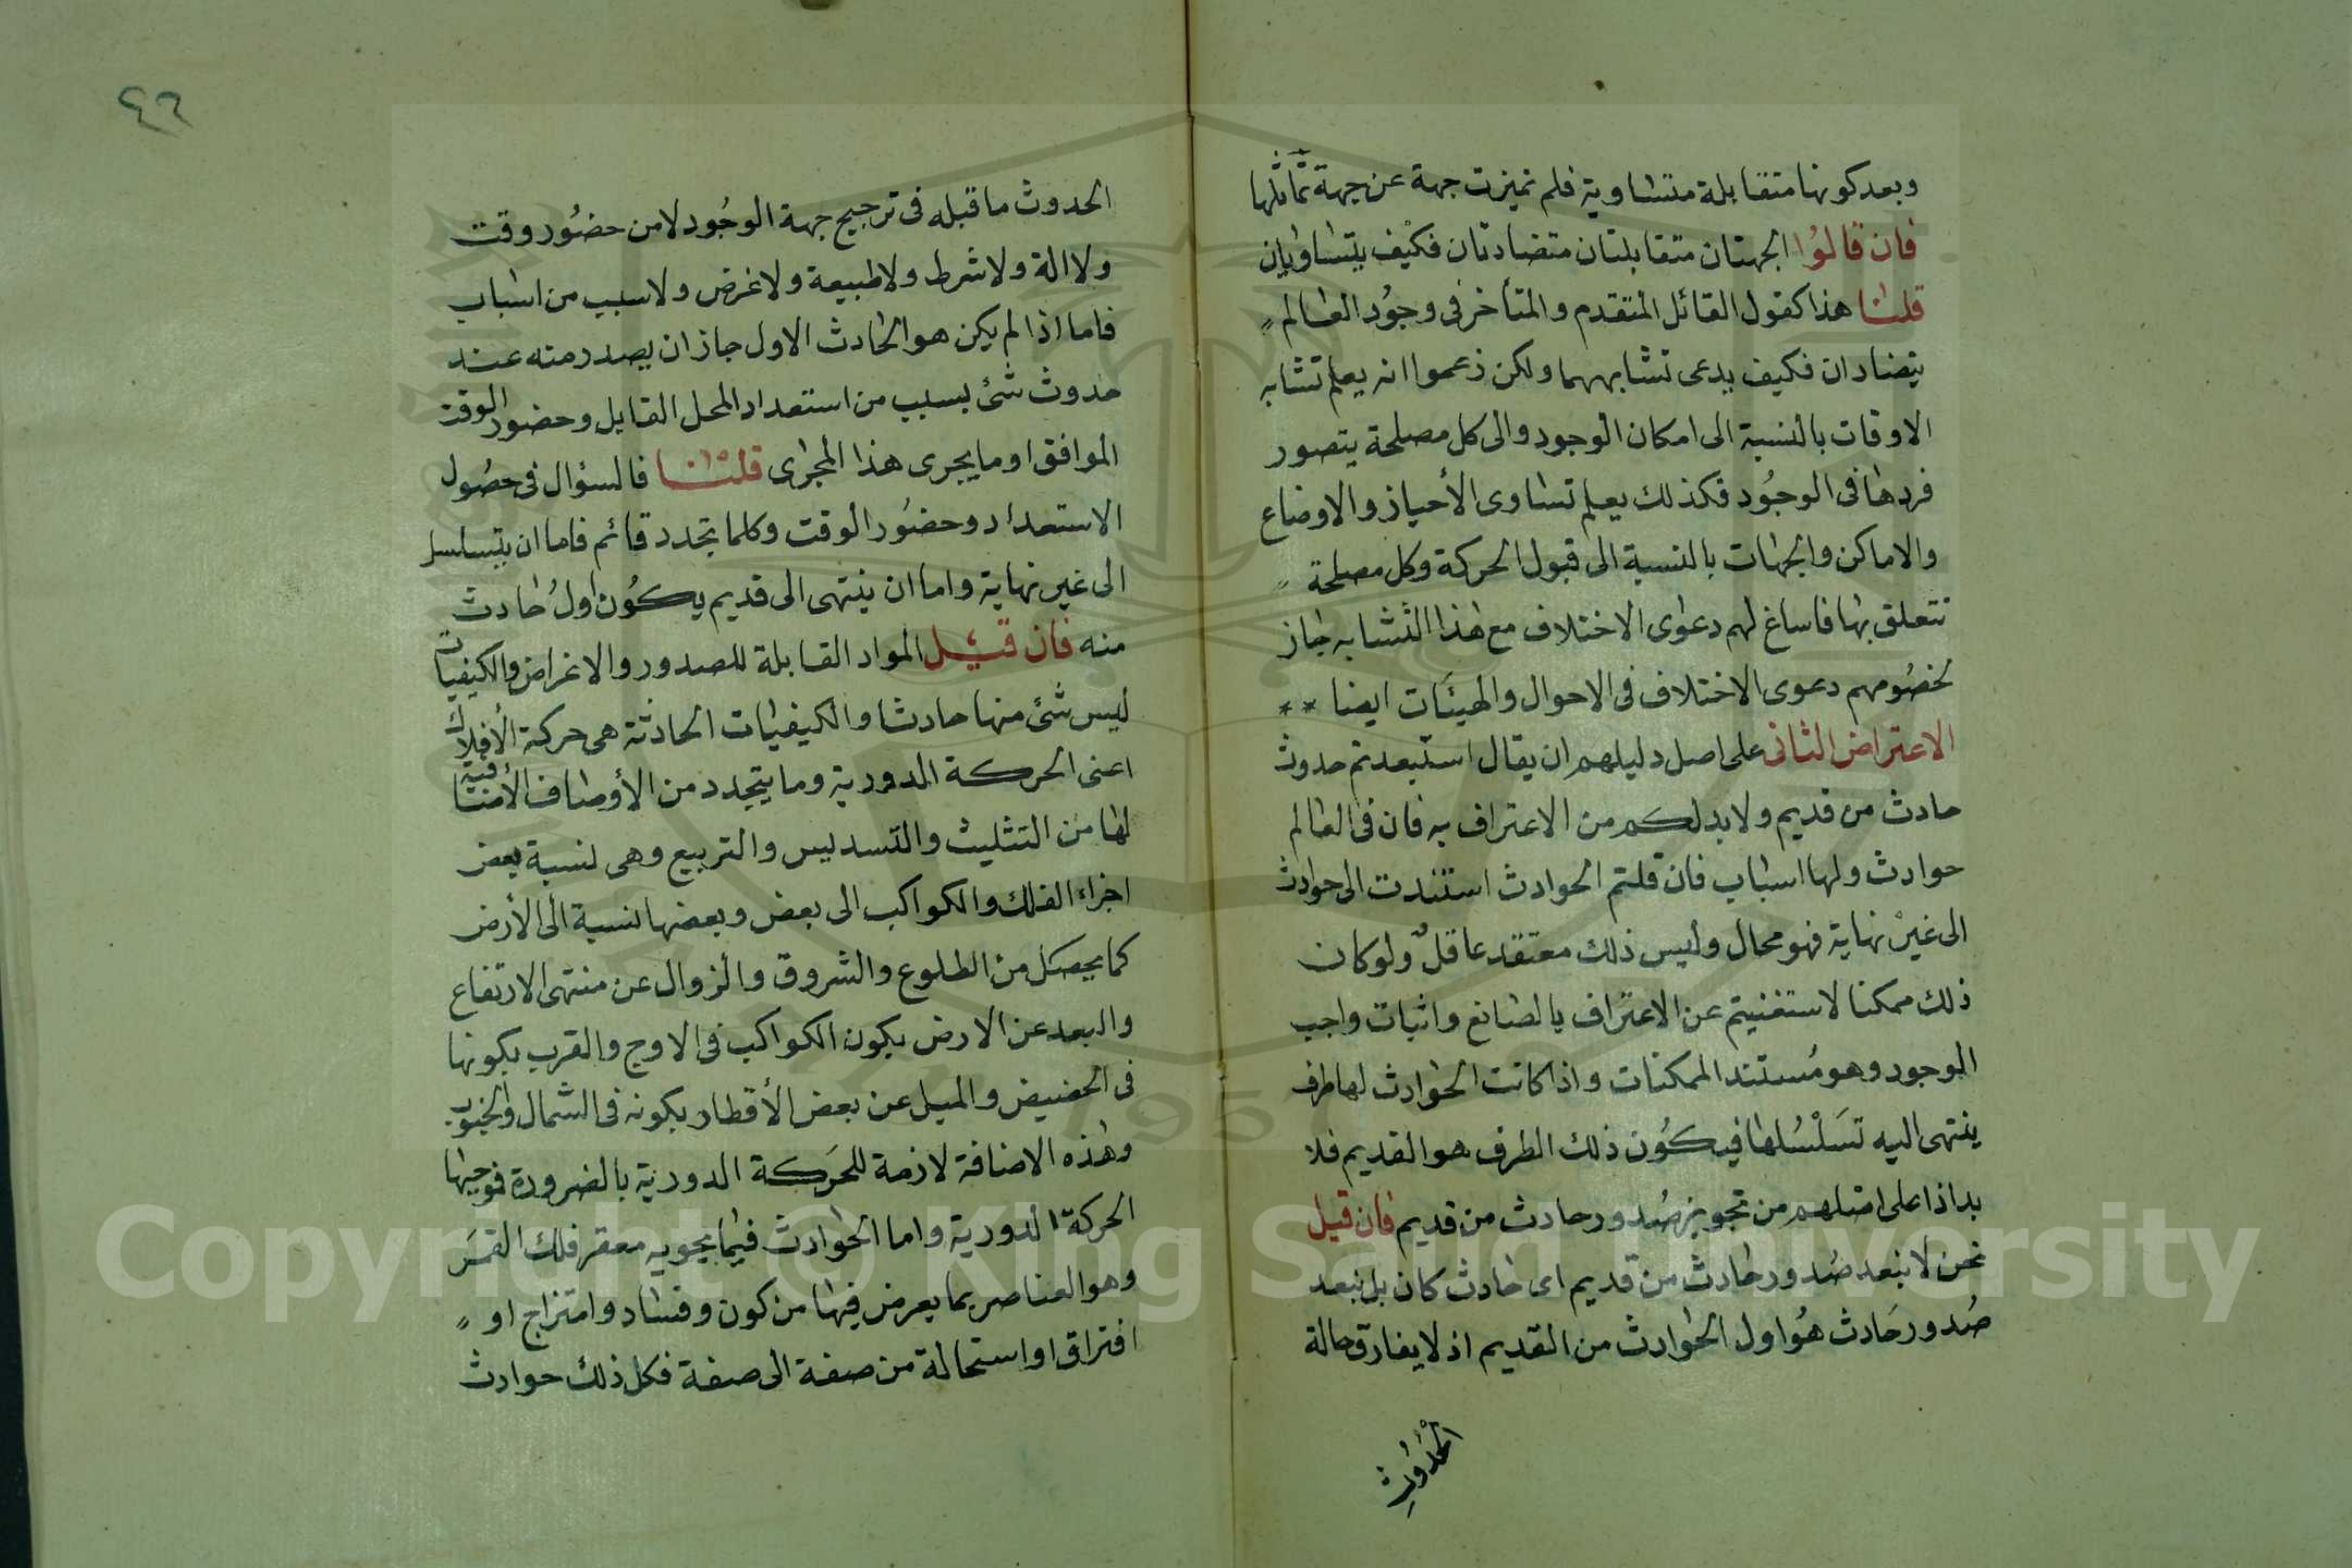 وبعد كونها متقابلة متساوية فلم تميزت جهة عن جهة تماثلها
فان قالوا الجهتان متقابلتان متضادتان فكيف يتساويان
قلنا هذا كقول القائل المتقدم والمتأخر فى وجود العالم
يتضادان فكيف يدعى تشابههما ولكن زعموا انه يعلم تشابه
الاوقات بالنسبة الى امكان الوجود والى كل مصلحة يتصور
فرضها فى الوجود فكذلك يعلم تساوى الأحياز والاوضاع
والاماكن والجهات بالنسبة الى قبول الحركة وكل مصلحة
تتعلق بها فاساغ لهم دعوى الاختلاف مع هذا التشابه جاز
لخصومهم دعوى الاختلاف فى الاحوال والهيئات ايضا
الاعتراض الثانى على اصل دليلهم ان يقال استبعدتم حدوث
حادث من قديم ولا بد لكم من الاعتراف به فان فى العالم
حوادث ولها اسباب فان قلتم الحوادث استندت الى حوادث
الى غير نهاية فهو محال وليس ذلك معتقد عاقل ولو كان
ذلك ممكنا لاستغنيتم عن الاعتراف بالصانع واثبات واجب
الوجود وهو مستند الممكنات واذا كانت الحوادث لها طرف
ينتهى اليه تسلسلها فيكون ذلك الطرف هو القديم فلا
بد اذا على اصلهم من تجويز صدور حادث من قديم فان قيل
نحن لا نبعد صدور حادث من قديم اى حادث كان بل نبعد
صدور حادث هو اول الحوادث من القديم اذ لا يفارق حالة
الحدوث
٤٦
الحدوث ما قبله فى ترجيح جهة الوجود لا من حضور وقت
ولا الة ولا شرط ولا طبيعة ولا غرض ولا سبب من اسباب
فاما اذا لم يكن هو الحادث الاول جاز ان يصدر منه عند
حدوث شئ بسبب من استعداد المحل القابل وحضور الوقت
الموافق او ما يجرى هذا المجرى قلنا فالسؤال فى حصول
الاستعداد وحضور الوقت وكلما تجدد قائم فاما ان يتسلسل
الى غير نهاية واما ان ينتهى الى قديم يكون اول حادث
منه فان قيل المواد القابلة للصدور والاغراض والكيفيات
ليس شئ منها حادثا والكيفيات الحادثة هى حركة الأفلاك
اعنى الحركة الدورية وما يتجدد من الأوصاف الاضافية
لها من التثليث والتسديس والتربيع وهى نسبة بعض
اجزاء الفلك والكواكب الى بعض وبعضها نسبة الى الأرض
كما يحصل من الطلوع والشروق والزوال عن منتهى الارتفاع
والبعد عن الارض بكون الكواكب فى الاوج والقرب بكونها
فى الحضيض والميل عن بعض الأقطار بكونه فى الشمال والجنوب
وهذه الاضافة لازمة للحركة الدورية بالضرورة فموجبها
الحركة الدورية واما الحوادث فيما يحويه مقعر فلك القمر
وهو العناصر بما يعرض فيها من كون وفساد وامتزاج او
افتراق او استحالة من صفة الى صفة فكل ذلك حوادث
Copyright © King Saud University
1957